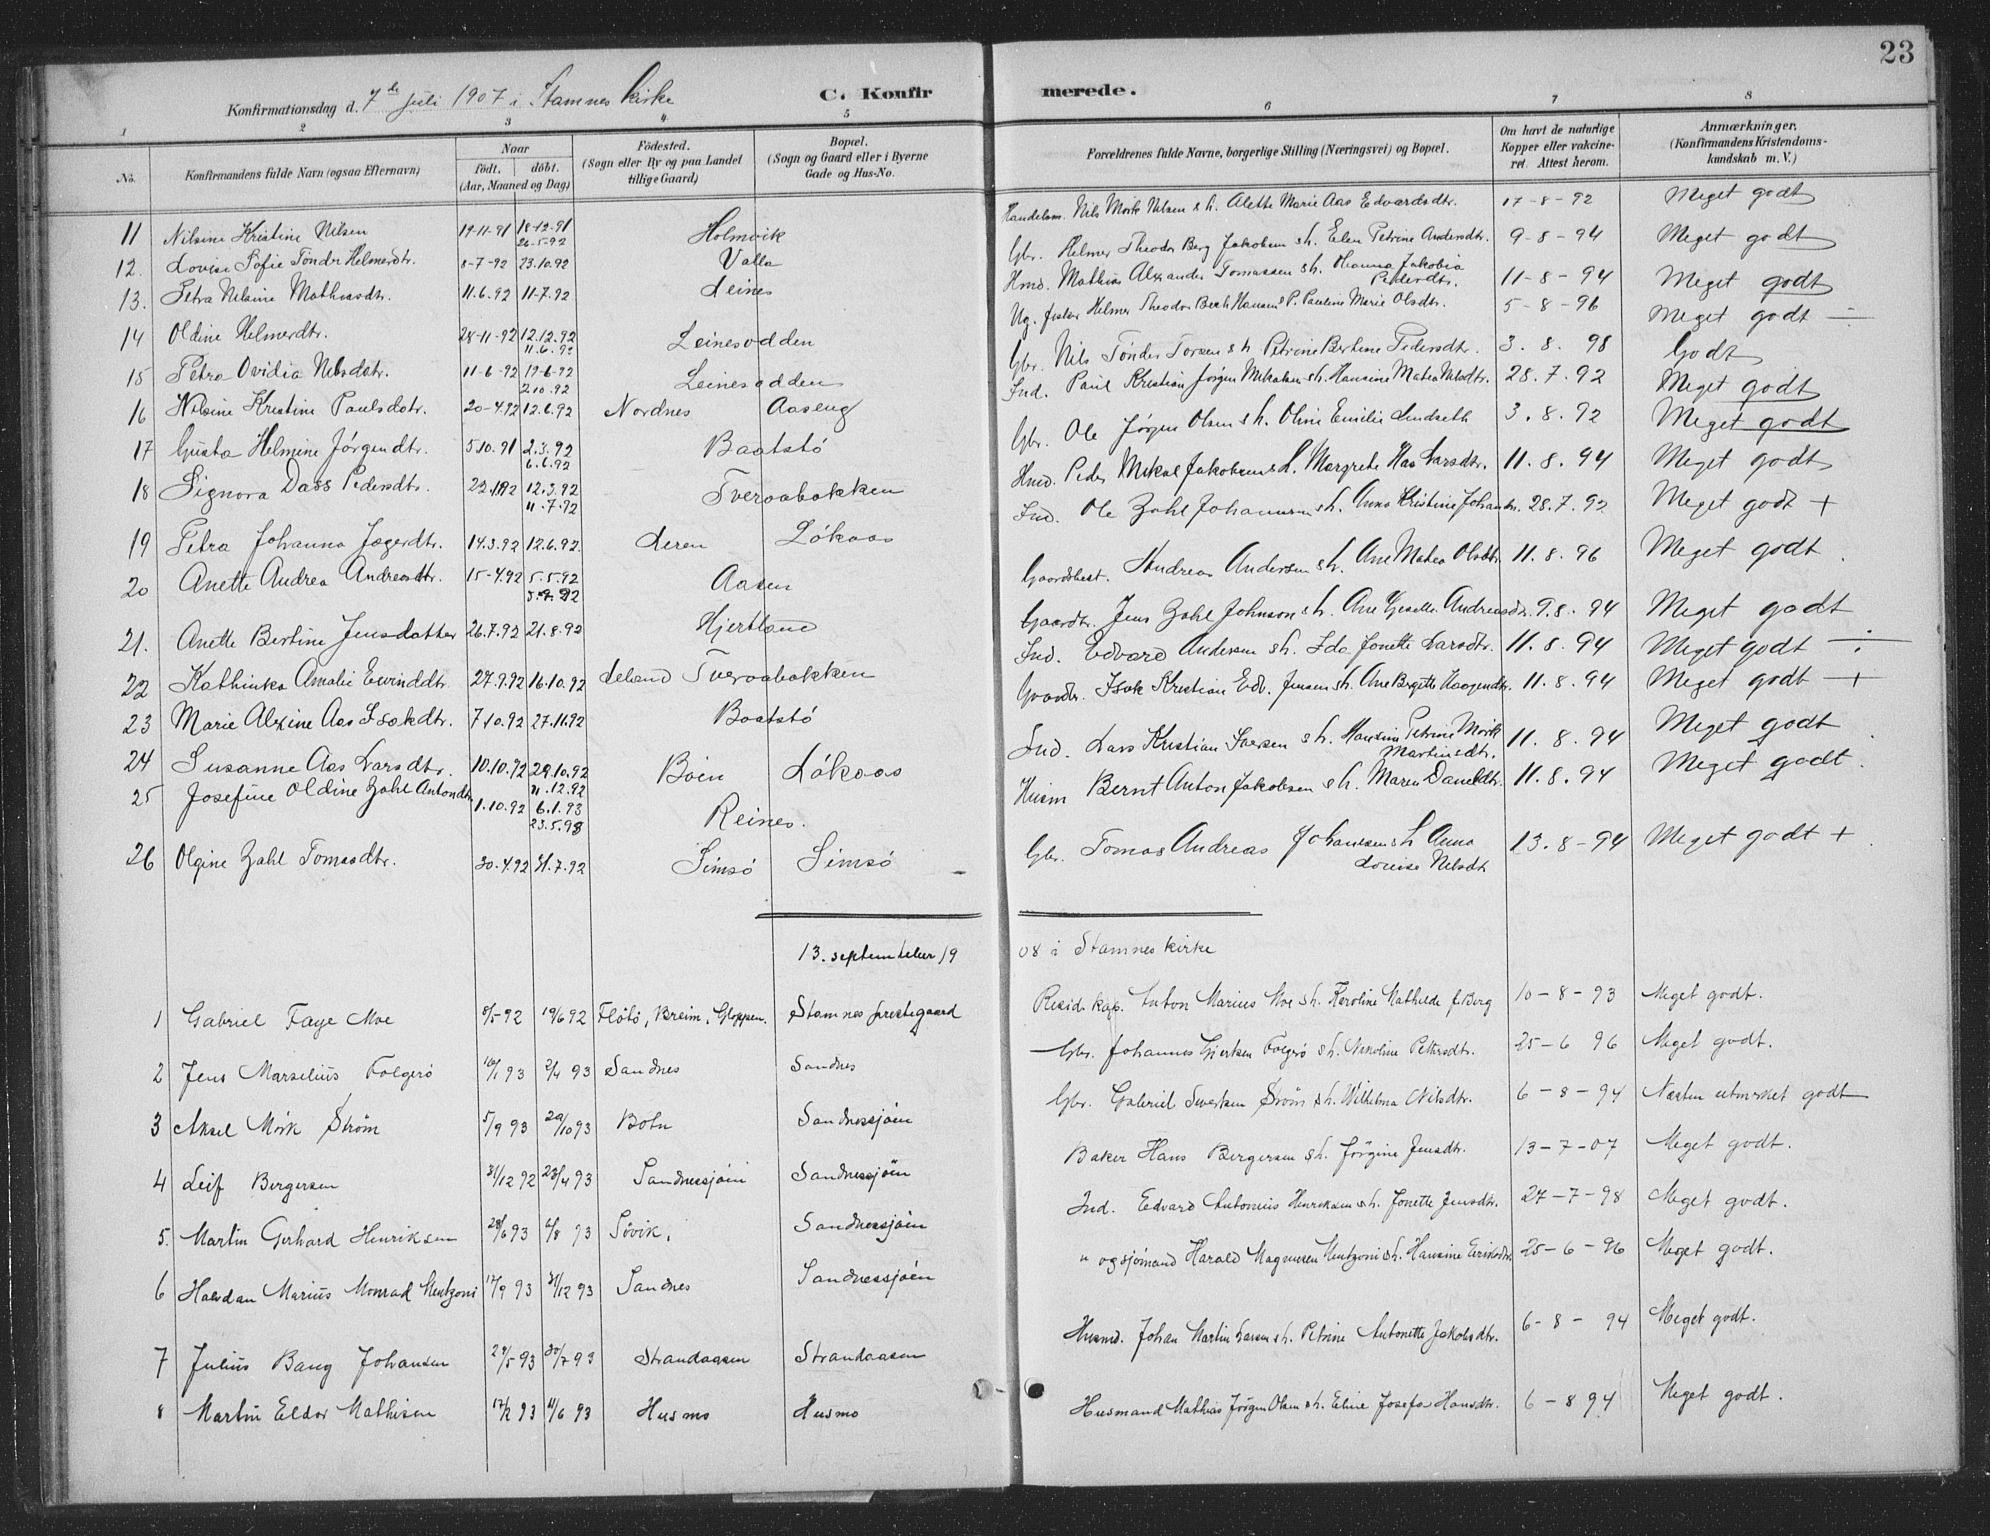 23
Konfirmationsdag d. 7de juli 1907 i Stamnes kirke C. Konfirmerede.
1 2 3 4 5 6 7 8
No. Konfirmandens fulde Navn (ogsaa Efternavn) Naar født. døbt. (Aar, Maaned og Dag) Födested. (Sogn eller By og paa Landet tillige Gaard) Bopæl. (Sogn og Gaard eller i Byerne Gade og Hus-No. Forældrenes fulde Navne, borgerlige Stilling (Næringsvei) og Bopæl. Om havt de naturlige Kopper eller vaccineret. Attest herom. Anmærkninger. (Konfirmandens Kristendomskundskab m. V.)
11 Nilsine Kristine Nilsen 19-11-91 18-12-91 26-5-92 Holmvik Handelsm. Nils Mork Nilsen & h. Alette Marie Aas Edvardsdtr. 17-8-92 Meget godt
12. Lovise Sofie Tönder Helmerdtr. 8-7-92 23.10.92 Valla Gbr. Helmer Theodor Berg Jakobsen & h. Elen Petrine Andersdtr. 9-8-94 Meget godt
13. Petra Nilsine Mathiasdtr. 11.6.92 11-7.92 Leines Hmd. Mathias Alexander Tomassen & h. Hanna Jakobia Pedersdtr. 11-8-94 Meget godt
14 Oldine Helmerdtr. 28-11-92 12.12.92 11.6.93 Leinesodden Ug. fisker Helmer Theodor Bech Hansen & P. Pauline Marie Olsdtr. 5-8-96 Meget godt ÷
15 Petra Ovidia Nilsdatr. 11-6-92 19-6-92 2.10.92 Leinesodden Gbr. Nils Tönder Torsen & h. Petrine Bertine Pedersdtr. 3.8.98 Godt
16 Nilsine Kristine Paulsdatr. 20-4.92 12.6.92 Nordnes Aaseng Ind. Paul Kristian Jörgen Mikalsen & h. Hansine Matea Nilsdtr. 28.7.92 Meget godt
17 Gusta Helmine Jörgendtr. 5.10.91 2.3.92 6.6.92 Baatstö Gbr. Ole Jörgen Olsen & h. Oline Emilie Lindseth 3.8.92 Meget godt
18 Signora Dass Pedersdtr. 23.1.92 12.3.92 11.7.92 Tveraabakken Hmd. Peder Mikal Jakobsen & h. Margrete Aas Larsdtr. 11.8.94 Meget godt
19 Petra Johanna Jægerdtr. 14.3.92 12.6.92. Leren Lökaas Ind. Ole Zahl Johannsen & h. Anna Kristine Johansdtr. 28.7.92 Meget godt +
20 Anette Andrea Andreasdtr. 15-4.92 5.5.92 3.7.92 Aasen Gaardbest. Andreas Andersen & h. Ane Matea Olsdtr. 11.8.96 Meget godt.
21. Anette Bertine Jensdatter 26.7.92 21.8.92 Hjertland Gaardbr. Jens Zahl Johnson & h. Ane Gjesette Andreasdtr. 9.8.94 Meget godt
22 Kathinka Amalie Eevinddtr. 27.9.92 16.10.92 Leland Tveraabakken Ind. Edvard Andersen & h. Ida Jonette Larsdtr. 11.8.94 Meget godt ÷
23 Marie Alxine Aas Isakdtr. 7.10.92 27.11.92 Baatstö Gaardbr. Isak Kristian Edv. Jensen & h. Ane Bergitte Haagendtr. 11.8.94 Meget godt +
24 Susanne Aas Larsdtr. 10.10.92 29.10.92 11.12.92 Böen Lökaas Ind. Lars Kristian Larsen & h. Hansine Petrine Mörk Martinsdtr. 11.8.94 Meget godt.
25 Josefine Oldine Zahl Antondtr. 1.10.92 6.1.93 23.5.93 Reines. Husm Bernt Anton Jakobsen & h. Maren Danieldtr. 11.8.94 Meget godt.
26 Olgine Zahl Tomasdtr. 30.4.92 31.7.92 Simsö Simsö Gbr. Tomas Andreas Johansen & h. Anna Lovise Nilsdtr 13.8-94 Meget godt +
13. september 1908 i Stamnes kirke
1 Gabriel Faye Moe 8/5 92 19/6 92 Flölö, Breim, Gloppen. Stamnes prestegaard Resid. kap. Anton Marius Moe & h. Karoline Mathilde f. Berg 10-8-93 Meget godt.
2 Jens Marselius Folgerö 16/1 93 2/4 93 Sandnes Sandnes Gbr. Johannes Gjertsen Folgerö & h. Nikoline Pettersdtr. 25-6 96 Meget godt.
3 Aksel Mörk Ström 5/9 93 29/10 93 Botn Sandnessjöen Gbr. Gabriel Sivertsen Ström & h. Wilhelma Nilsdtr. 6-8-94 Næsten utmerket godt
4 Leif Bergersen 31/12 92 23/4 93 Sandnessjöen Sandnessjöen Baker Hans Bergersen & h. Jörgine Jensdtr. 13-7-07 Meget godt.
5. Martin Gerhard Henriksen 28/6 93 6/8 93 Sövik, Sandnessjöen Ind. Edvard Antonius Henriksen & h. Jonette Jensdtr. 27-7-98 Meget godt.
6 Halvdan Marius Monrad Mentzoni 17/9 93 31/12 93 Sandnes Sandnessjöen " og sjömand Harald Magnusen Mentzoni & h. Hansine Eriksdtr. 25-6-96 Meget godt.
7 Julius Bang Johansen 29/5 93 30/7 93 Strandaasen Strandaasen Husmd. Johan Martin Larsen & h. Petrine Antonette Jakobsdtr. 6-8-94 Meget godt.
8 Martin Eldor Mathisen 17/2 93 11/6 93 Husmo Husmo Husmand Mathias Jörgen Olsen & h. Eline Josefa Hansdtr. 6-8 94 Meget godt.